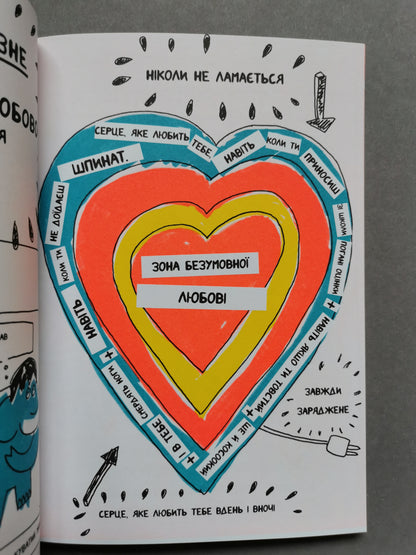 ЗНЕ
ЮБОВ
Я
АВ
НІКОЛИ НЕ ЛАМАЄТЬСЯ
СЕРЦЕ, ЯКЕ ЛЮБИТЬ
ТЕБЕ
НАВІТЬ
КОЛИ ТИ
ПРИНОСИШ
ЗІ ШКОЛИ
ПОГАНІ ОЦІНКИ
+
НАВІТЬ ЯКЩО ТИ ТОВСТИЙ
+
ЩЕ И КОСООКИЙ
+
І В ТЕБЕ
СМЕРДЯТЬ НОГИ
+
НАВІТЬ
КОЛИ ТИ
НЕ ДОЇДАЄШ
ШПИНАТ.
ЗОНА БЕЗУМОВНОЇ
ЛЮБОВІ
ЗАВЖДИ
ЗАРЯДЖЕНЕ
СЕРЦЕ, ЯКЕ ЛЮБИТЬ ТЕБЕ ВДЕНЬ І ВНОЧІ